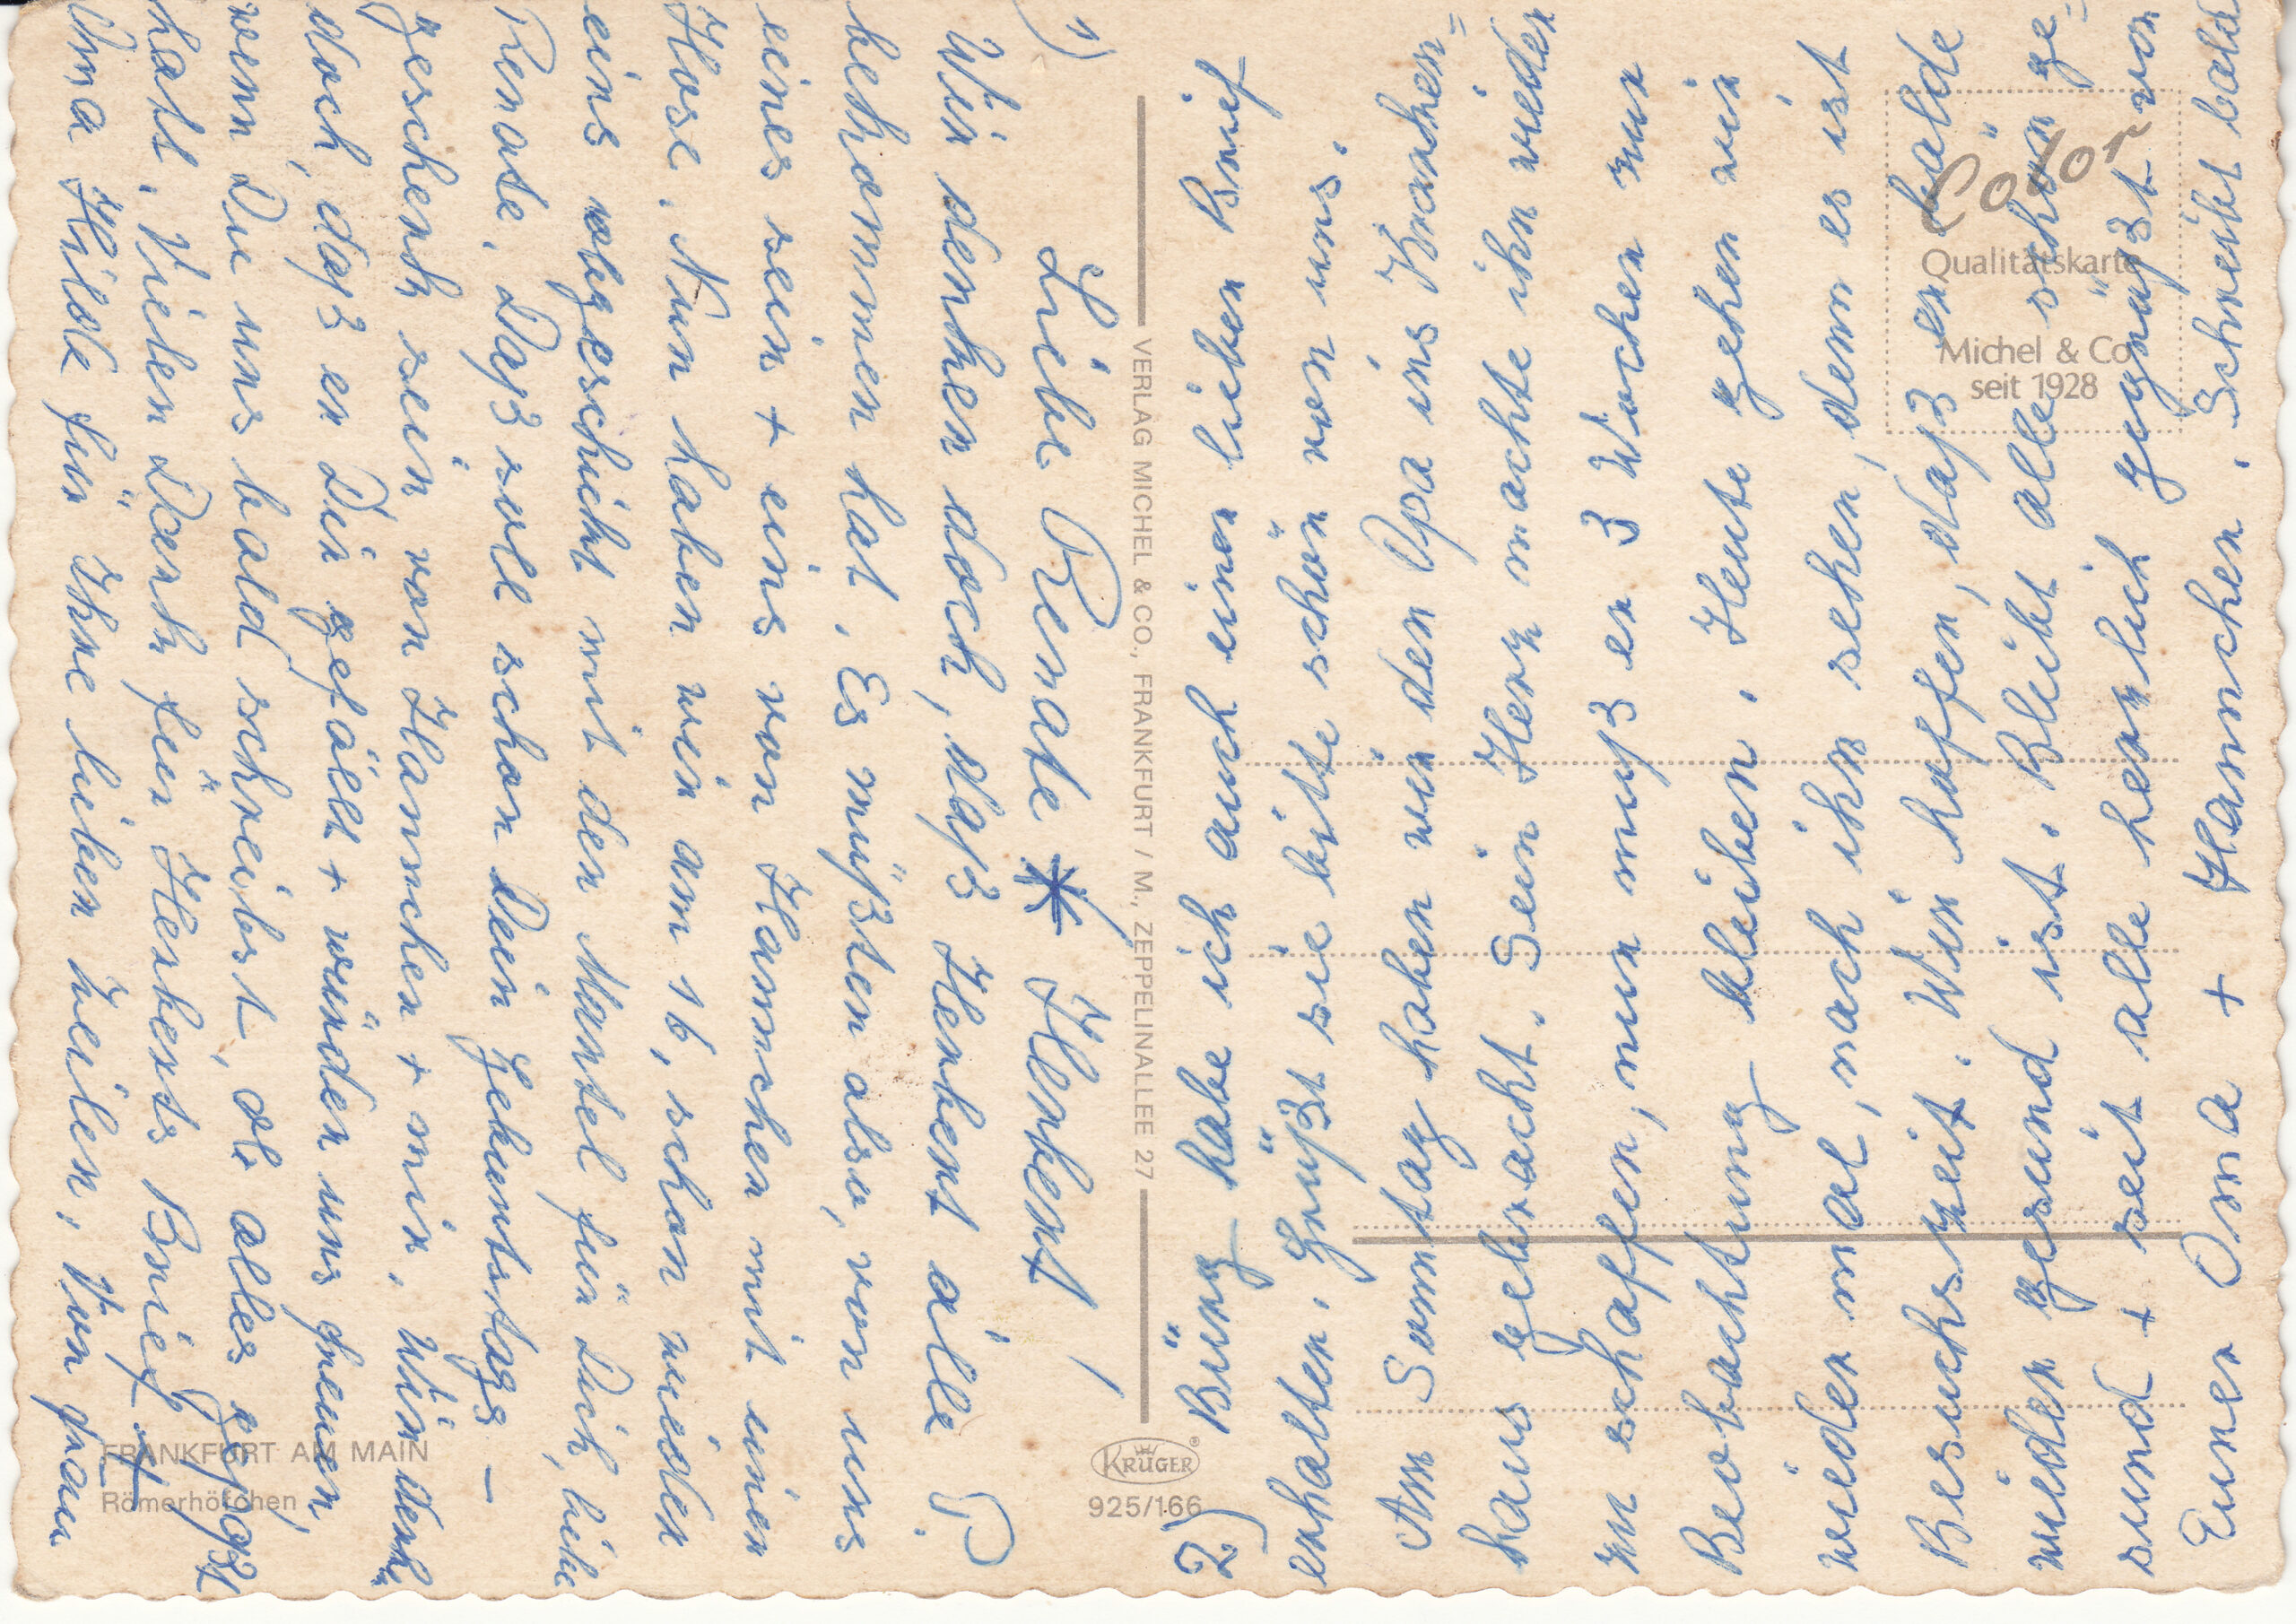 1)
Liebe Renate * Herbert!
Wir denken doch, daß Herbert alle P.
bekommen hat. Es müßten also, von uns
eines sein + eins von Hannchen mit einer
Hose. Nun haben wir am 16, schon wieder
eins abgeschickt mit den Mantel für Dich, liebe
Renate. Daß soll schon Dein Geburtstags –
geschenk sein von Hannchen + mir. Wir denk
doch, daß er Dir gefällt + würden uns freuen,
wenn Du uns bald schreibst, ob alles gepaßt
hatt. Vielen Dank für Herberts Brief +
Oma Hilde für Ihre lieben Zeilen. Von frau
2) Büng habe ich auch einen lieben Brief
erhalten. Grüßt sie bitte schön von uns.
Am Sonntag haben wir den Opa ins Kranken=
haus gebracht. Sein Herz machte ihn wieder
zu schaffen, nun muß er 3 Wochen zur
Beobachtung bleiben. Heute gehen wir
wieder mal, nach ihn sehen, denn es ist
Besuchszeit. Wir hoffen, daß er balde
wieder gesund ist. Bleibt alle schön ge=
sund + seit alle herzlich gegrüßt von
Eurer Oma + Hannchen. Schreibt bald
Color
Qualitätskarte
Michel & Co
seit 1928
VERLAG MICHEL & CO., FRANKFURT / M., ZEPPELINALLEE 27
KRÜGER®
925/166
FRANKFURT AM MAIN
Römerhöfchen